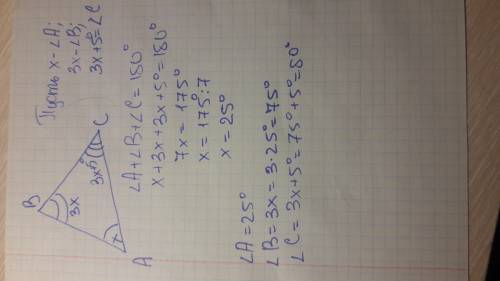 Пусть x - ∠A;
3x - ∠B;
3x+5°=∠C
B
3x
3x+5°
C
x
A
∠A+∠B+∠C=180°
x+3x+3x+5°=180°
7x=175°
x=175°:7
x=25°
∠A=25°
∠B=3x=3·25°=75°
∠C=3x+5°=75°+5°=80°